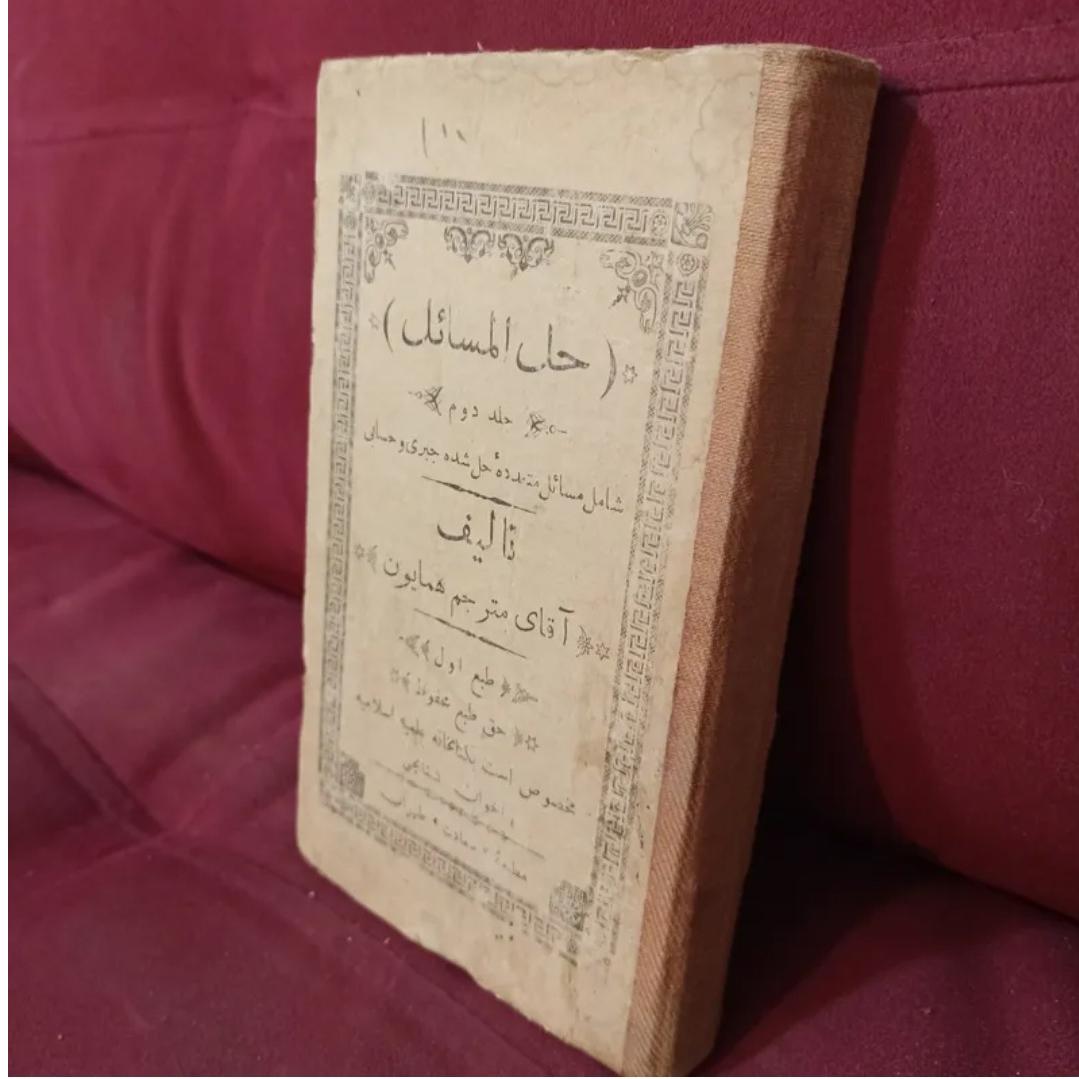 ۱۱۰
( حل المسائل )
جلد دوم
شامل مسائل متعددهٔ حل شده جبری و حسابی
تالیف
آقای مترجم همایون
طبع اول
حق طبع محفوظ
مخصوص است بکتابخانه علمیه اسلامیه
اخوان کتابچی
مطبعهٔ سعادت طهران